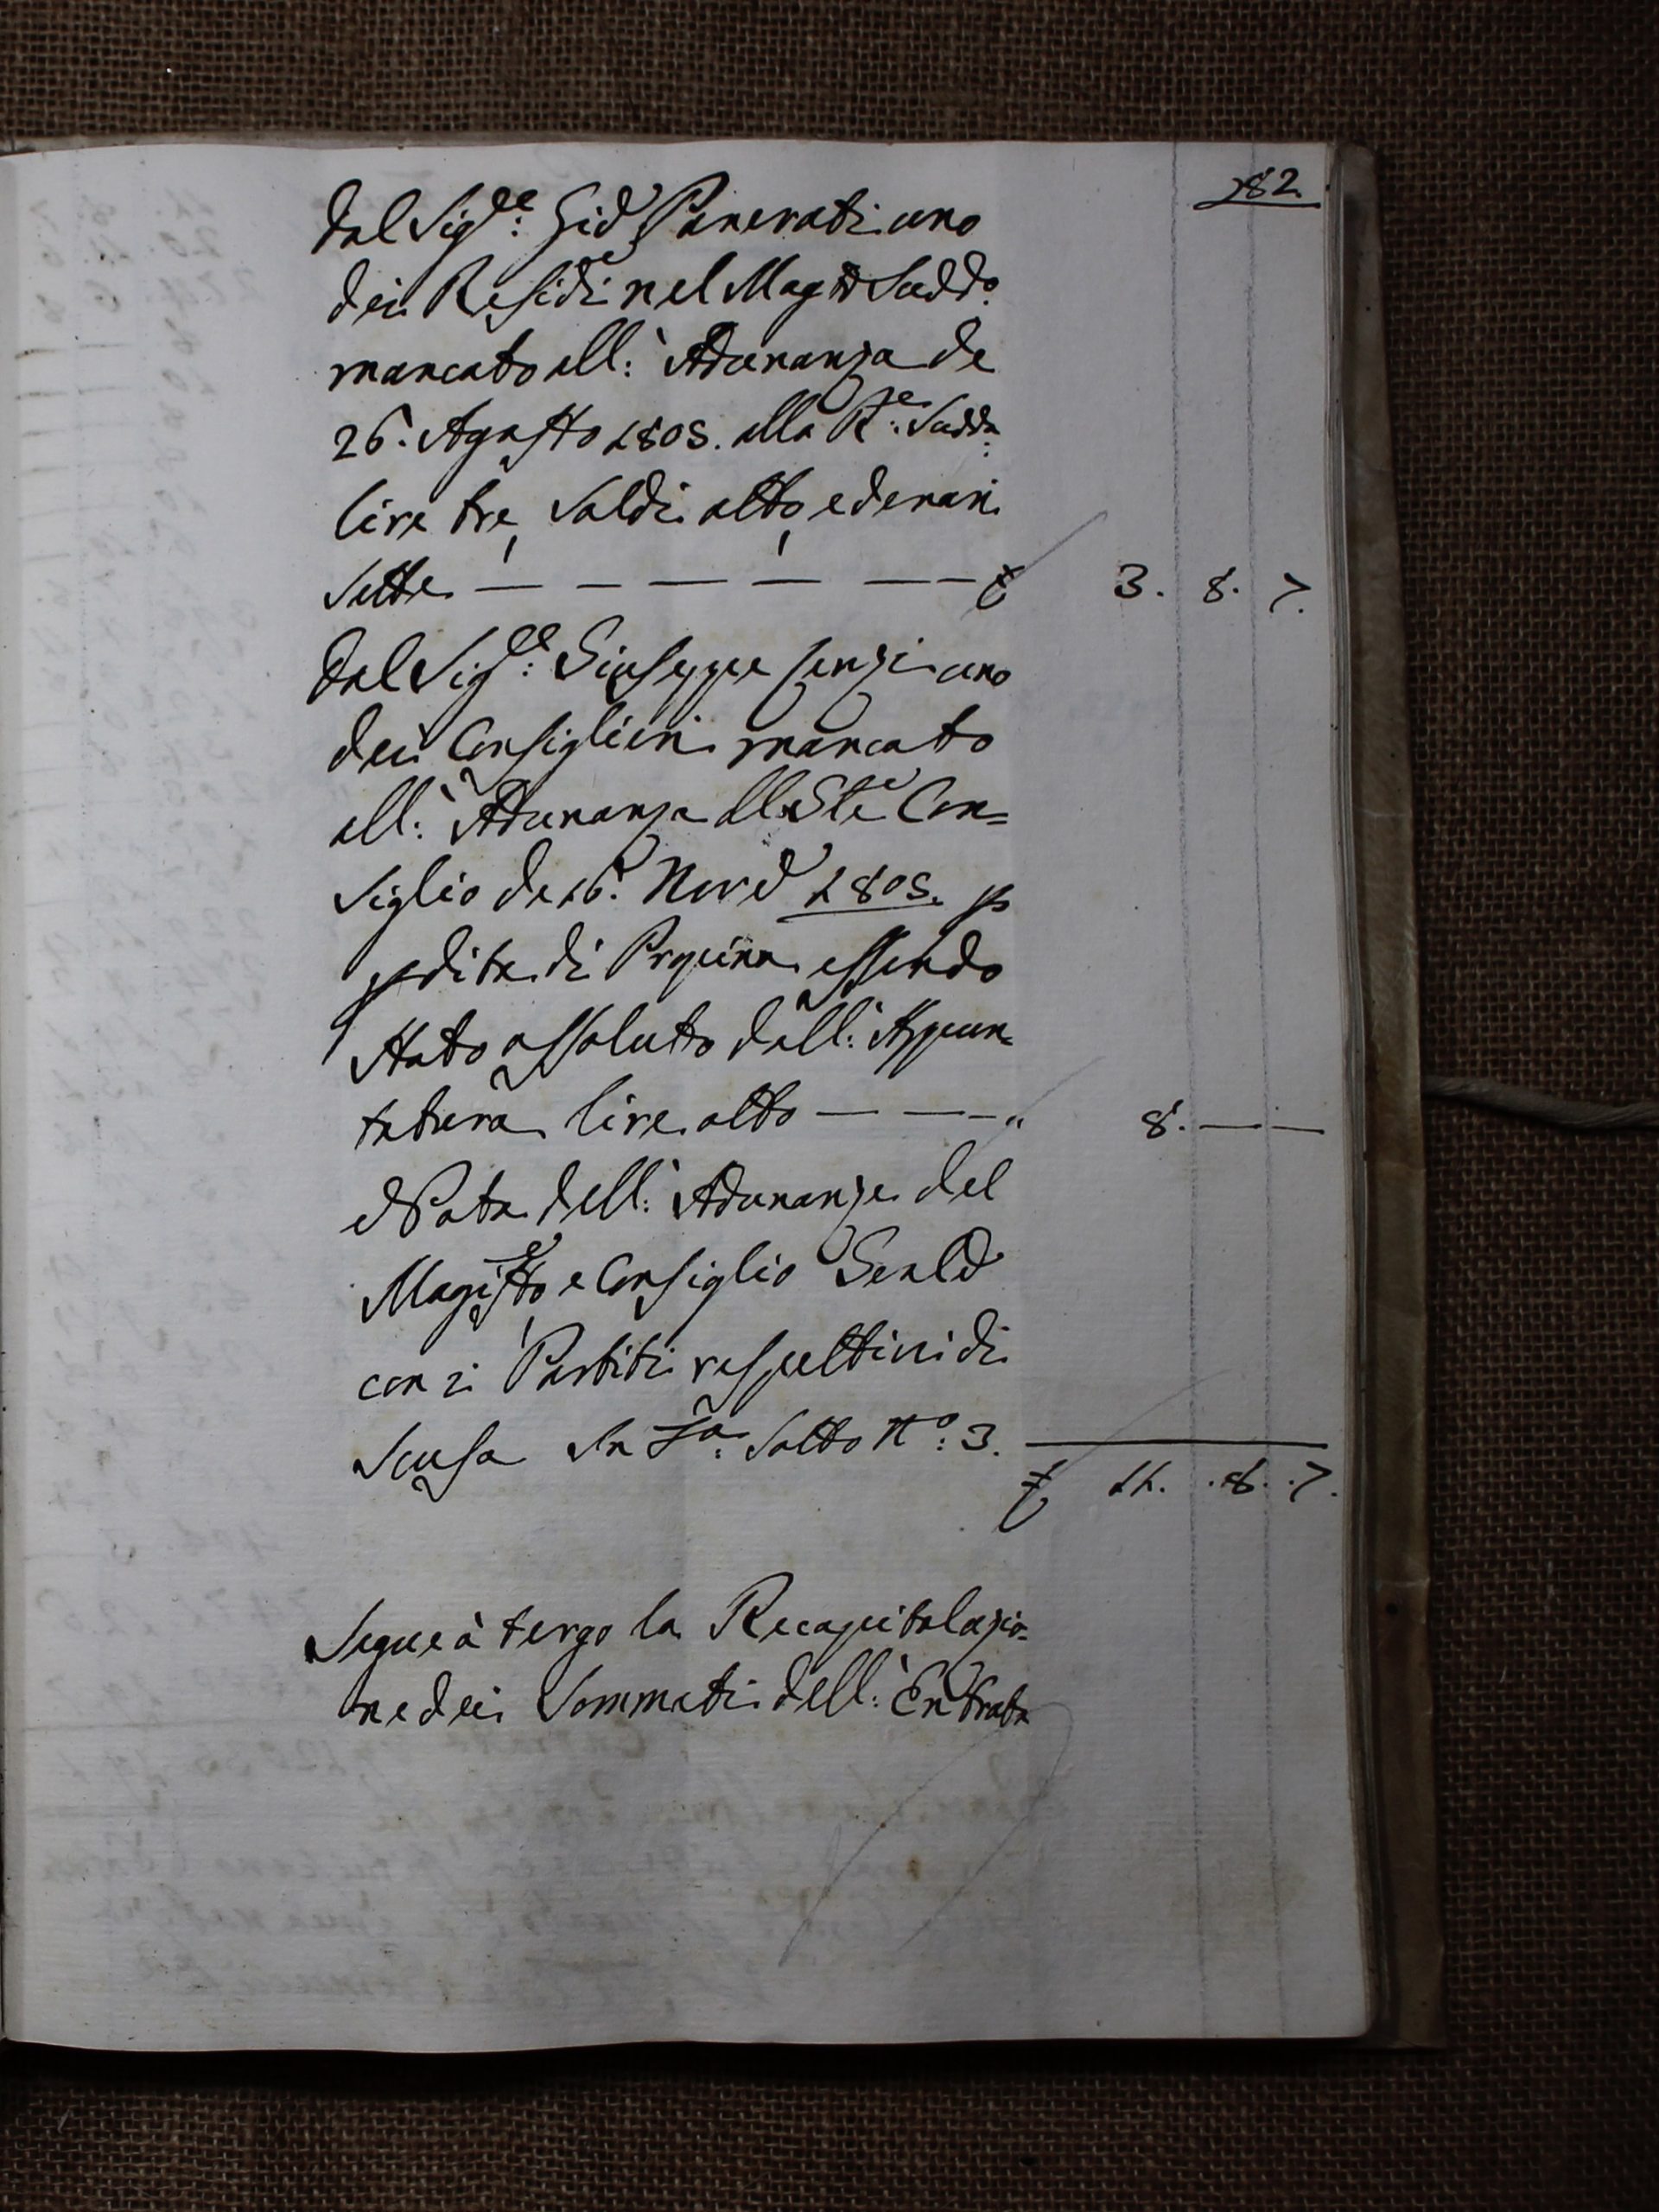 182.
Dal Sig.re: Gio Pancrati uno
dei Reside nel Mag.to Sudd.o
mancato all: Adunanza de
26. Agosto 1808. alla R.e: Sudda:
lire tre, Soldi otto, e denari
Sette — — — — — — £ 3. 8. 7.
Dal Sig.re: Giuseppe uno
dei Consiglieri mancato
all: Adunanza Con=
siglio de 16. Nov.e 1808. p
pdita di essendo
stato assoluto dall: Appun=
tatura lire otto — — — " 8. — —
Nota dell: Adunanze del
Magisto, e Consiglio Genle
con i Partiti respettivi di
Scusa In Fa: Sotto N.o: 3.
£ 11. 8. 7.
Segue à tergo la Recapitolazio=
ne dei Sommati dell: Entrata